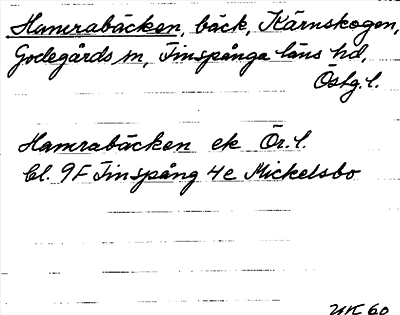 Hamrabäcken, bäck, Kärnskogen,
Godegårds sn, Finspånga läns hd,
Östg. l.
Hamrabäcken ek Ör. l.
bl. 9F Finspång 4e Mickelsbo
UK 60